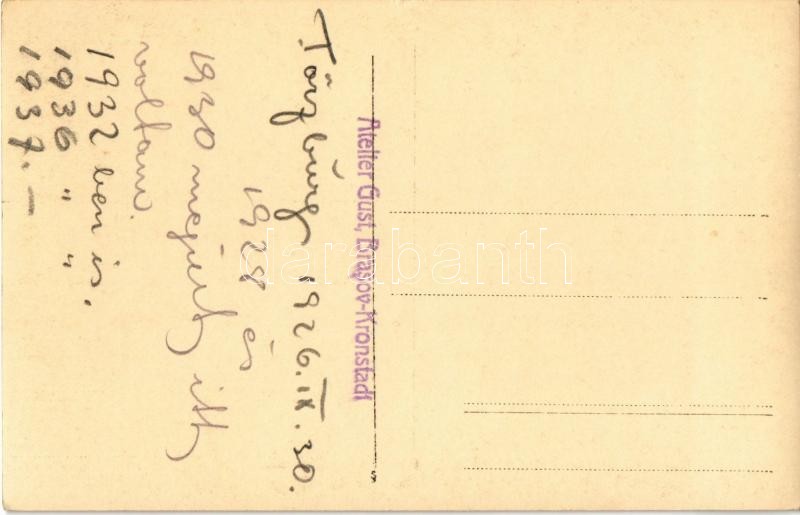 Törzburg 1926. IX. 30.
1928 és
1930 megint itt
voltam.
1932 ben is.
1936 " "
1937. —
Atelier Gust, Braşov-Kronstadt
darabanth